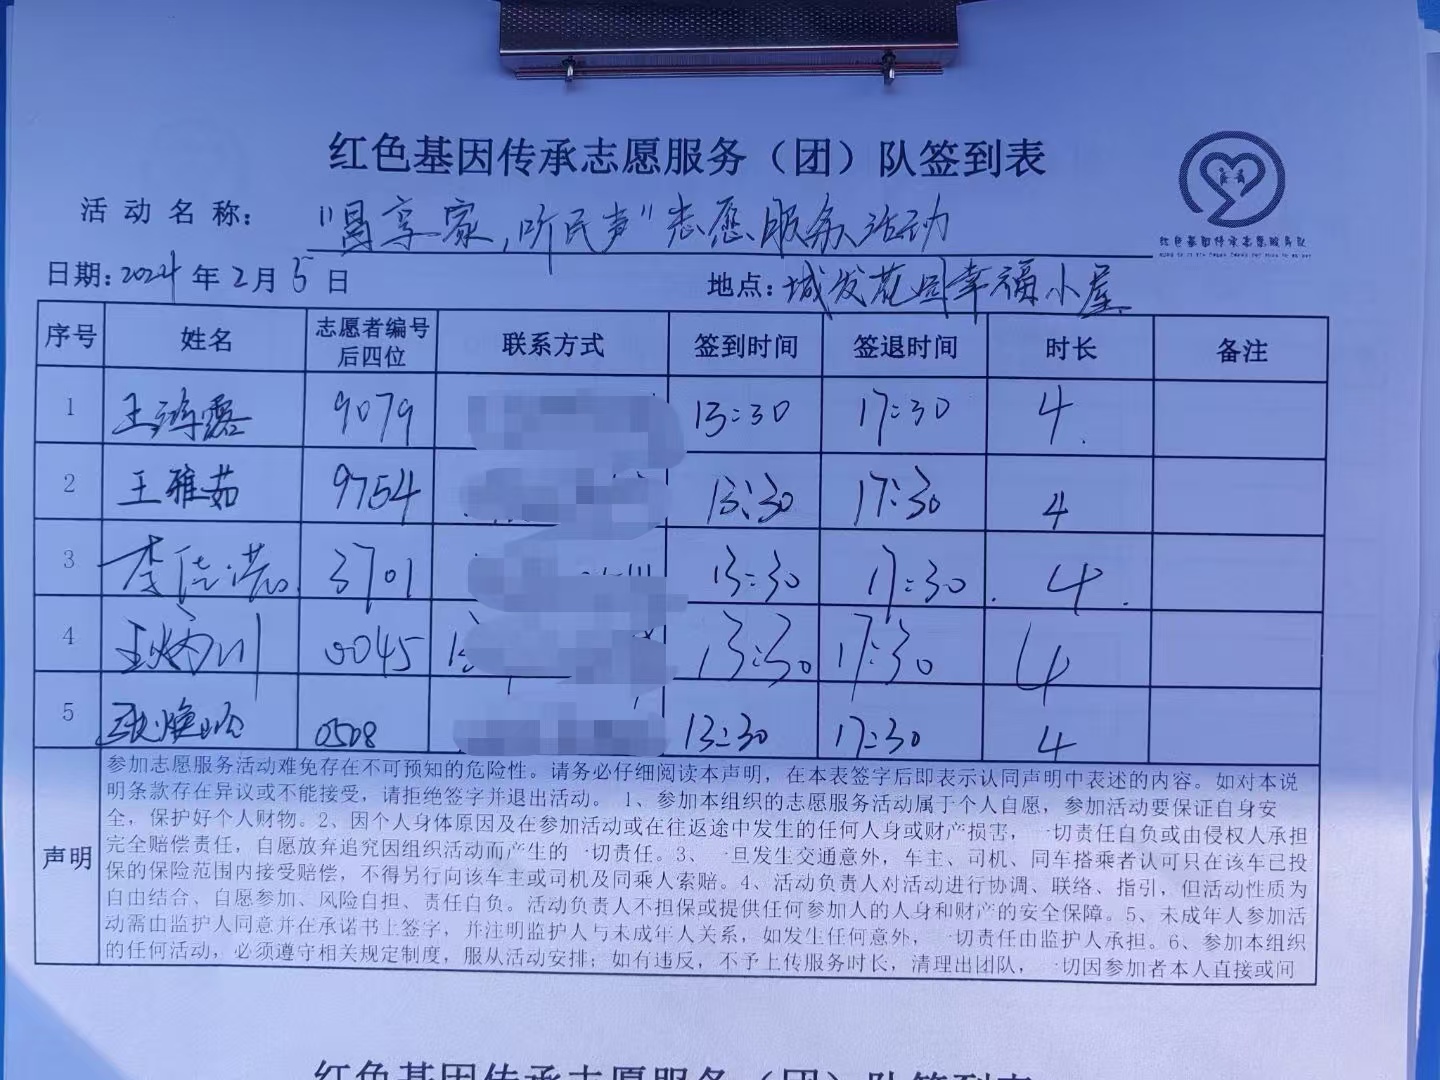 红色基因传承志愿服务（团）队签到表
活动名称：“冒享家，听民声”志愿服务活动
红色基因传承志愿服务队
日期：2024年2月5日 地点：城发花园幸福小屋
序号 姓名 志愿者编号后四位 联系方式 签到时间 签退时间 时长 备注
1 王 露 9079 13:30 17:30 4
2 王雅茹 9754 13:30 17:30 4
3 李佳浩 3701 13:30 17:30 4
4 王炳川 0045 13:30 17:30 4
5 0508 13:30 17:30 4
声明
参加志愿服务活动难免存在不可预知的危险性。请务必仔细阅读本声明，在本表签字后即表示认同声明中表述的内容。如对本说
明条款存在异议或不能接受，请拒绝签字并退出活动。 1、参加本组织的志愿服务活动属于个人自愿，参加活动要保证自身安
全，保护好个人财物。2、因个人身体原因及在参加活动或在往返途中发生的任何人身或财产损害，一切责任自负或由侵权人承担
完全赔偿责任，自愿放弃追究因组织活动而产生的一切责任。3、一旦发生交通意外，车主、司机、同车搭乘者认可只在该车已投
保的保险范围内接受赔偿，不得另行向该车主或司机及同乘人索赔。4、活动负责人对活动进行协调、联络、指引，但活动性质为
自由结合、自愿参加、风险自担、责任自负。活动负责人不担保或提供任何参加人的人身和财产的安全保障。5、未成年人参加活
动需由监护人同意并在承诺书上签字，并注明监护人与未成年人关系，如发生任何意外，一切责任由监护人承担。6、参加本组织
的任何活动，必须遵守相关规定制度，服从活动安排；如有违反，不予上传服务时长，清理出团队，一切因参加者本人直接或间
红色基因传承志愿服务（团）队签到表